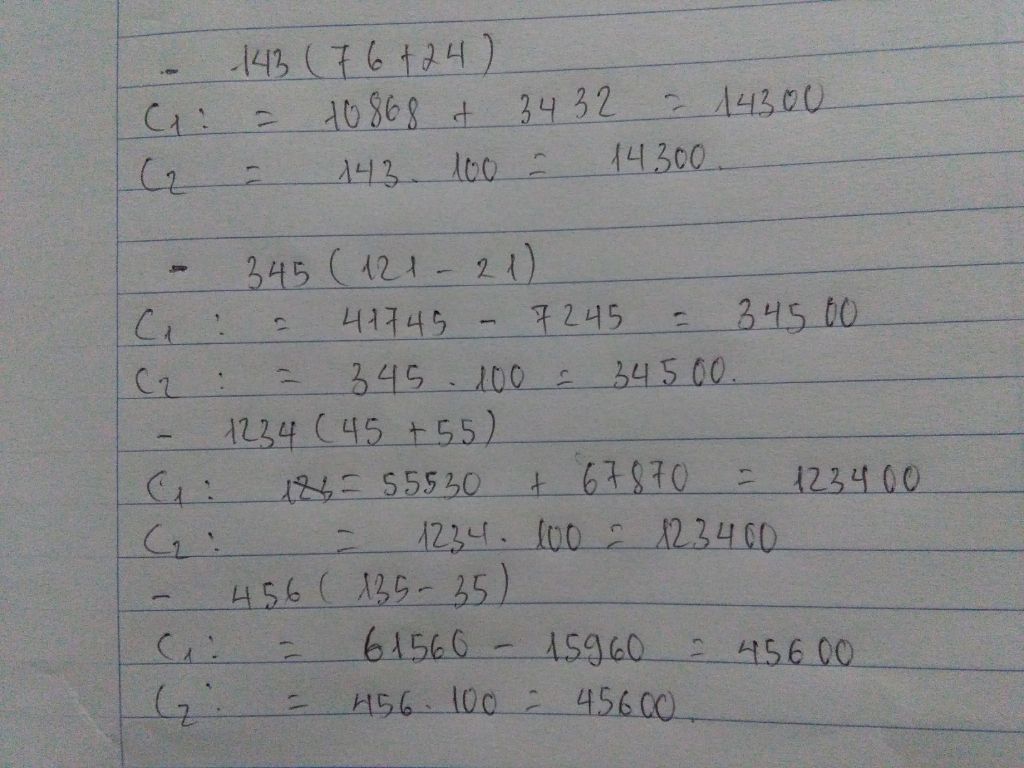 - 143 (76+24)
C1: = 10868 + 3432 = 14300
C2 = 143. 100 = 14300.
- 345 (121 - 21)
C1 : = 41745 - 7245 = 34500
C2 : = 345 . 100 = 34500.
- 1234 (45 +55)
C1: = 55530 + 67870 = 123400
C2: = 1234. 100 = 123400
- 456 ( 135- 35)
C1: = 61560 - 15960 = 45600
C2: = 456. 100 = 45600.